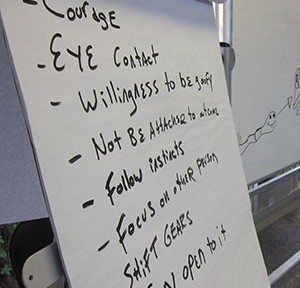 - Courage
- EYE Contact
- Willingness to be goofy
- Not Be Attached to outcome
- Follow instincts
- Focus on other person
SHiFT GEARS
open to it